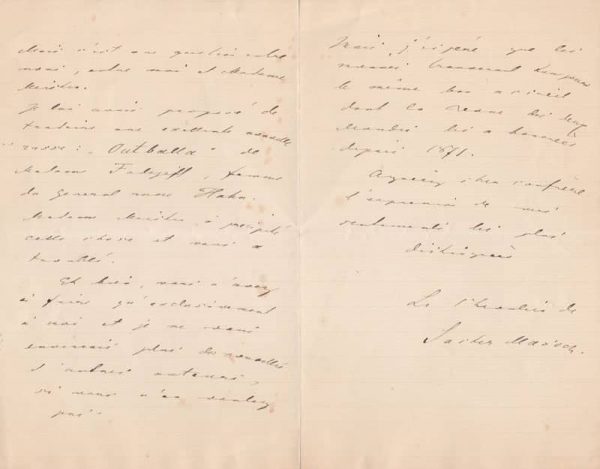 Mais c'est une question entre
nous, entre moi et Madame
Je lui avais proposé de
traduire une excellente nouvelle
russe: "Outballa" de
Madame femme
du general russe
Madame
cette chose et nous a
Eh bien, vous n'avez
à faire qu'exclusivement
à moi et je ne vous
enverrais plus des nouvelles
d'autres auteurs,
si vous n'en voulez
pas.
Mais, j'espère que les
miennes trouveront toujours
le même bon accueil
dont la Revue des deux
Mondes les a honorées
depuis 1871.
Agréez cher confrère
l'expression de mes
sentiments les plus
distingués
Le Chevalier de
Sacher Masoch.